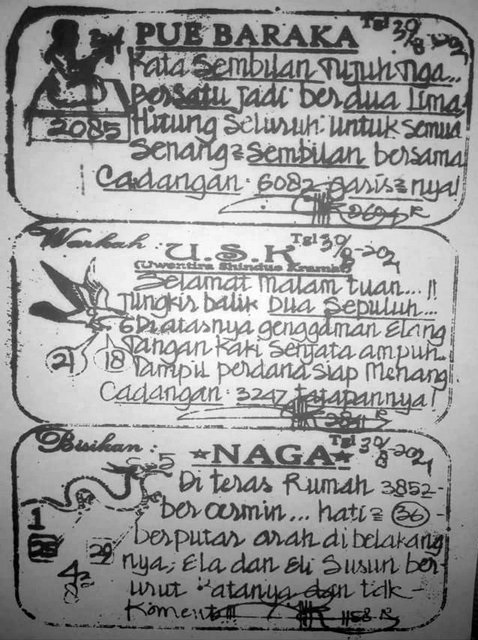 PUE BARAKA
Tgl 30/8-2021
Kata Sembilan Tujuh Tiga...
Bersatu Jadi berdua Lima
Hitung Seluruh untuk semua
Senang2 Sembilan bersama
Cadangan 6082 garis2nya!
2085
Warkah:
U.S.K
Tgl 30/8-2021
(Uwentira Shindue Kramat)
Selamat malam tuan...!!
Tungkis balik Dua Sepuluh...
6 Diatasnya genggaman Elang
Tangan kaki Senjata ampuh
Tampil perdana Siap Menang
Cadangan 3247 tatapannya!
21
18
Bisikan:
★NAGA★
Tgl 30/8-2021
Di teras Rumah 3852-
ber cermin... hati2 36-
berputar arah di belakang
nya, Ela dan Eli Susun ber-
urut atanya dan tdk-
Koment
1158
5
1
29
4